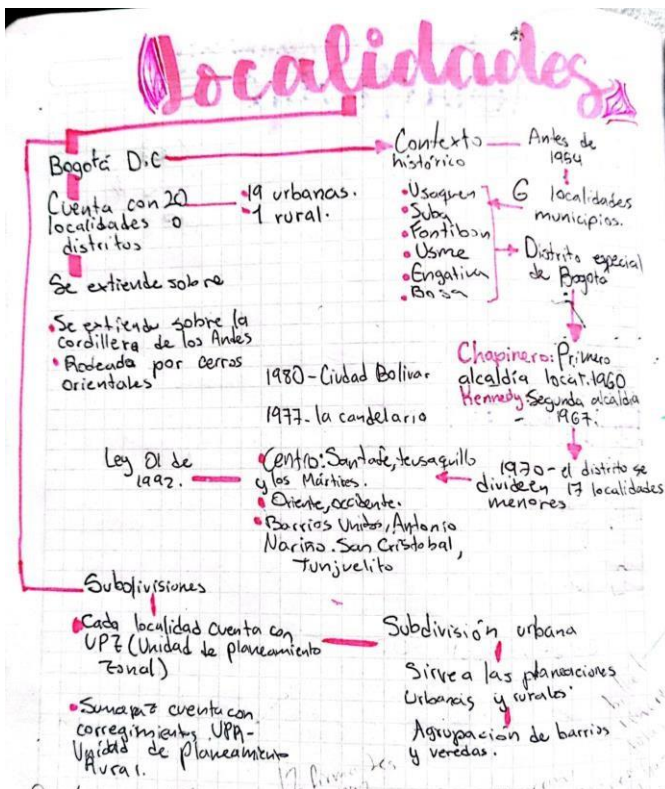 Localidades
Bogotá D.C
Cuenta con 20
localidades o
distritos
•19 urbanas.
•1 rural.
Se extiende sobre
•Se extiende sobre la
cordillera de los Andes
•Rodeada por cerros
orientales
Contexto
histórico
Antes de
1954
6 localidades
municipios.
•Usaquen
•Suba
•Fontibon
•Usme
•Engativa
•Bosa
Distrito especial
de Bogotá
Chapinero: Primero
alcaldía local.1960
Kennedy: Segunda alcaldía
1967.
1980-Ciudad Bolivar
1977-la candelario
1970-el distrito se
divide en 17 localidades
menores
•Centro: Santafe, teusaquillo
y los Mártires.
•Oriente, occidente.
•Barrios Unidos, Antonio
Nariño. San Cristobal,
Tunjuelito
Ley 01 de
1992.
Subdivisiones
•Cada localidad cuenta con
UPZ (Unidad de planeamiento
Zonal)
•Sumapaz cuenta con
corregimientos UPR-
Unidad de Planeamiento
Rural.
Subdivisión urbana
Sirve a las planeaciones
Urbanas y rurales.
Agrupación de barrios
y veredas.